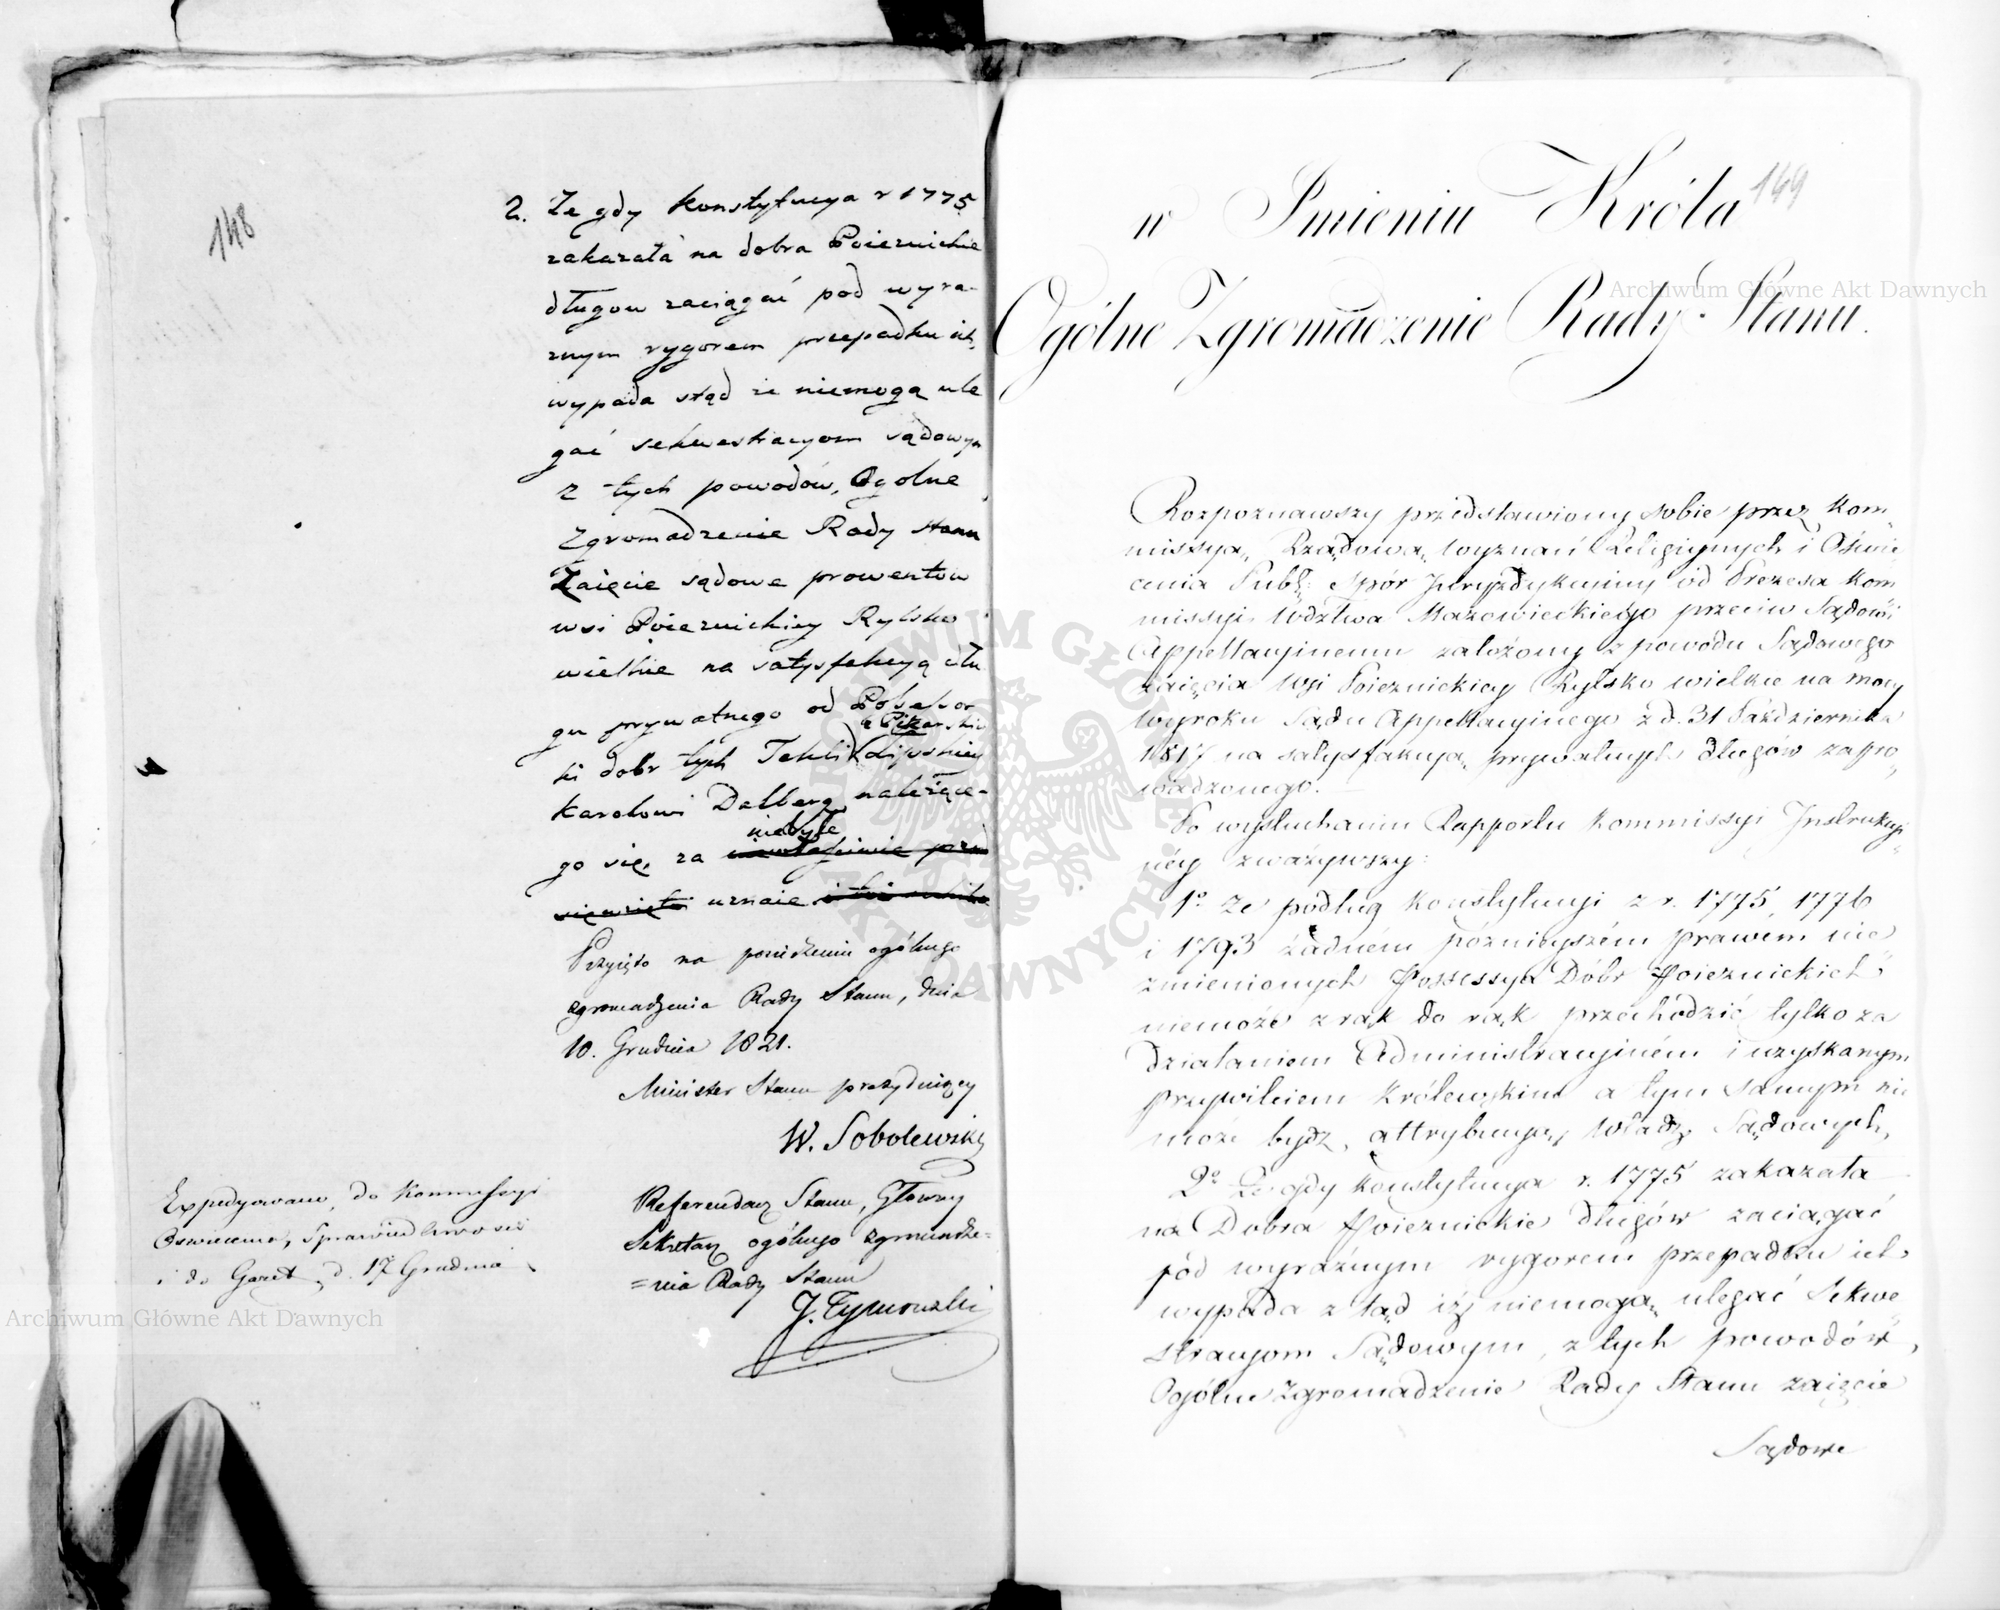 148
2. Ze gdy Konstytucya r 1775
zakazała na dobra Poiezuickie
długow zaciągać pod wyra-
znym rygorem przepadku ich,
wypada stąd że niemogą ule
gać sekwestracyom sądowym
z tych powodów, Ogolne
Zgromadzenie Rady Stanu
Zaięcie sądowe prowentow
wsi Poiezuickiey Rylsko
wielkie na satysfakcyą dłu
gu prywatnego od Possessor
z Pikarskich
ki dobr tych Tekli Lipskiey
Karolowi Dalberg należące-
niebyłe
go się, za
uznaie
Przyięto na posiedzeniu ogólnego
zgromadzenia Rady Stanu, dnia
10. Grudnia 1821.
Minister Stanu prezyduiący
W. Sobolewski
Referendarz Stanu, Główny
Sekretarz ogólnego zgromadze=
=nia Rady Stanu
J. Tymowski
Expedyowano, do Kommissyi
Oswiecenia, Sprawiedliwosci
i do Gazet, d. 17 Grudnia
149
w Imieniu Króla
Ogólne Zgromadzenie Rady Stanu.
Rozpoznawszy przedstawiony sobie przez Kom
missyą Rządową Wyznań Religiynych i Oświe
cenia Publ: spór Juryzdykcyiny od Prezesa Kom
missyi Wdztwa Mazowieckiego przeciw Sądowi
Appellacyinemu założony z powodu Sądowego
zaięcia Wsi Poiezuickiey Rylsko wielkie na mocy
Wyroku Sądu Appellacyinego z d. 31 Października
1817 na satysfakcyą prywatnych długów zapro
wadzonego.
Po wysłuchaniu Rapportu Kommissyi Instrukcyi
ney zważywszy:
1º Ze podług Konstytucyi z r. 1775, 1776
i 1793 żadném póznieyszém prawem nie
zmienionych Possessya Dóbr Poiezuickich
niemoże z rąk do rąk przechodzić tylko za
działaniem Administracyiném i uzyskanym
przywileiem Królewskim a tym samym nie
może bydz attrybucyą Władz Sądowych,
2º Ze gdy Konstytucya r. 1775 zakazała
na Dobra Poiezuickie długów zaciągać
pod wyraźnym rygorem przepadku ich
wypada z tąd iż niemogą ulegać Sekwe
stracyom Sądowym, z tych powodów,
Ogólne Zgromadzenie Rady Stanu zaięcie
Sądowe
Archiwum Główne Akt Dawnych
Archiwum Główne Akt Dawnych
ARCHIWUM GŁÓWNE AKT DAWNYCH